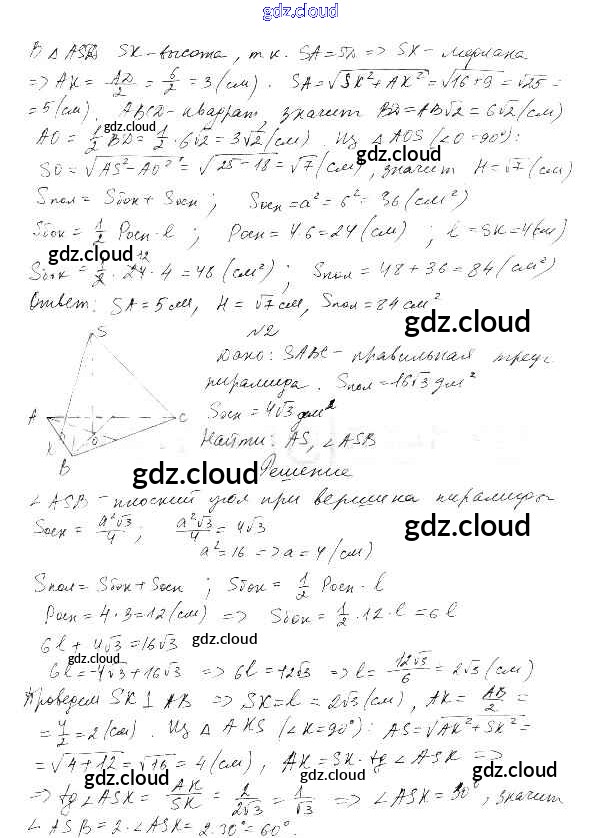 gdz.cloud
В △ASD SK-высота, т.к. SA=SD => SK-медиана
=> AK = AD/2 = 6/2 = 3 (см). SA=√SK²+AK² = √16+9 = √25 =
=5(см). ABCD-квадрат, значит BD=AB√2=6√2(см)
gdz.cloud
AO = 1/2 BD = 1/2 · 6√2 = 3√2 (см). Из △AOS (∠O=90°):
gdz.cloud
SO = √AS²-AO² = √25-18 = √7 (см), значит H=√7(см)
Sпол = Sбок + Sосн ; Sосн = a² = 6² = 36 (см²)
gdz.cloud
Sбок = 1/2 Pосн · l ; Pосн = 4·6=24 (см) ; l = SK=4(см)
gdz.cloud
Sбок = 1/2 · 24 · 4 = 48 (см²) ; Sпол = 48+36=84 (см²)
Ответ: SA=5см, H=√7см, Sпол=84см²
gdz.cloud
S
№2
Дано: SABC-правильная треуг
пирамида. Sпол=16√3 дм²
A
C
K
O
B
Sосн = 4√3 дм²
Найти: AS, ∠ASB
gdz.cloud
Решение
∠ASB-плоский угол при вершине пирамиды
gdz.cloud
Sосн = a²√3/4 ; a²√3/4 = 4√3
a²=16 => a=4 (см)
Sпол = Sбок + Sосн ; Sбок = 1/2 Pосн · l
Pосн = 4·3=12(см) => Sбок = 1/2 · 12 · l = 6l
6l + 4√3 = 16√3
gdz.cloud
gdz.cloud
6l = -4√3 + 16√3 => 6l = 12√3 => l = 12√3/6 = 2√3 (см)
Проведем SK ⊥ AB => SK=l=2√3(см), AK = AB/2 =
= 4/2 = 2(см). Из △AKS (∠K=90°): AS=√AK²+SK² =
= √4+12 = √16 = 4(см), AK = SK·tg∠ASK =>
gdz.cloud
gdz.cloud
=> tg∠ASK = AK/SK = 2/2√3 = 1/√3 => ∠ASK = 30°, значит
gdz.cloud
∠ASB = 2·∠ASK = 2·30° = 60°.